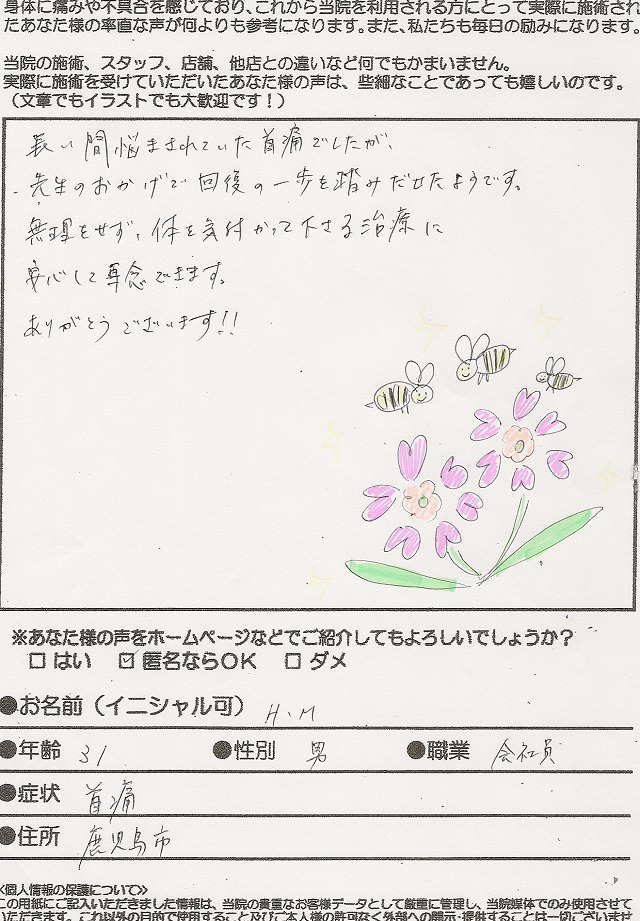 身体に痛みや不具合を感じており、これから当院を利用される方にとって実際に施術され
たあなた様の率直な声が何よりも参考になります。また、私たちも毎日の励みになります。
当院の施術、スタッフ、店舗、他店との違いなど何でもかまいません。
実際に施術を受けていただいたあなた様の声は、些細なことであっても嬉しいのです。
（文章でもイラストでも大歓迎です！）
長い間悩まされていた首痛でしたが、
先生のおかげで回復の一歩を踏みだせたようです。
無理をせず、体を気付かって下さる治療に
安心して専念できます。
ありがとうございます!!
※あなた様の声をホームページなどでご紹介してもよろしいでしょうか？
□ はい ☑ 匿名ならOK □ ダメ
●お名前（イニシャル可） H.M
●年齢 31 ●性別 男 ●職業 会社員
●症状 首痛
●住所 鹿児島市
<個人情報の保護について>
この用紙にご記入いただきました情報は、当院の貴重なお客様データとして厳重に管理し、当院媒体でのみ使用させて
いただきます。これ以外の目的で使用すること及びご本人様の許可なく外部への開示・提供することは一切ございませ